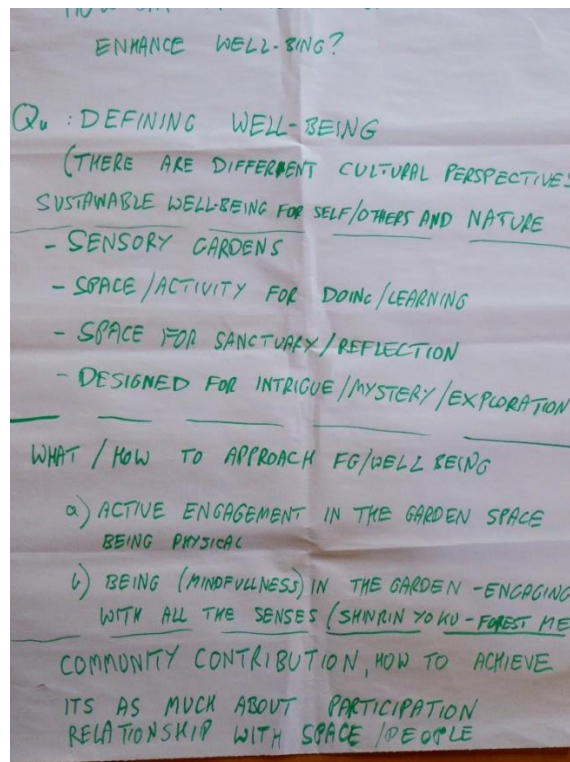 ENHANCE WELL-BING?
Qu : DEFINING WELL-BEING
(THERE ARE DIFFERENT CULTURAL PERSPECTIVES
SUSTAINABLE WELL-BEING FOR SELF/OTHERS AND NATURE
- SENSORY GARDENS
- SPACE/ACTIVITY FOR DOING/LEARNING
- SPACE FOR SANCTUARY/REFLECTION
- DESIGNED FOR INTRIGUE/MYSTERY/EXPLORATION
WHAT / HOW TO APPROACH FG/WELL BEING
a) ACTIVE ENGAGEMENT IN THE GARDEN SPACE
BEING PHYSICAL
b) BEING (MINDFULLNESS) IN THE GARDEN - ENGAGING
WITH ALL THE SENSES (SHINRIN YOKU - FOREST ME
COMMUNITY CONTRIBUTION, HOW TO ACHIEVE
ITS AS MUCH ABOUT PARTICIPATION
RELATIONSHIP WITH SPACE/PEOPLE